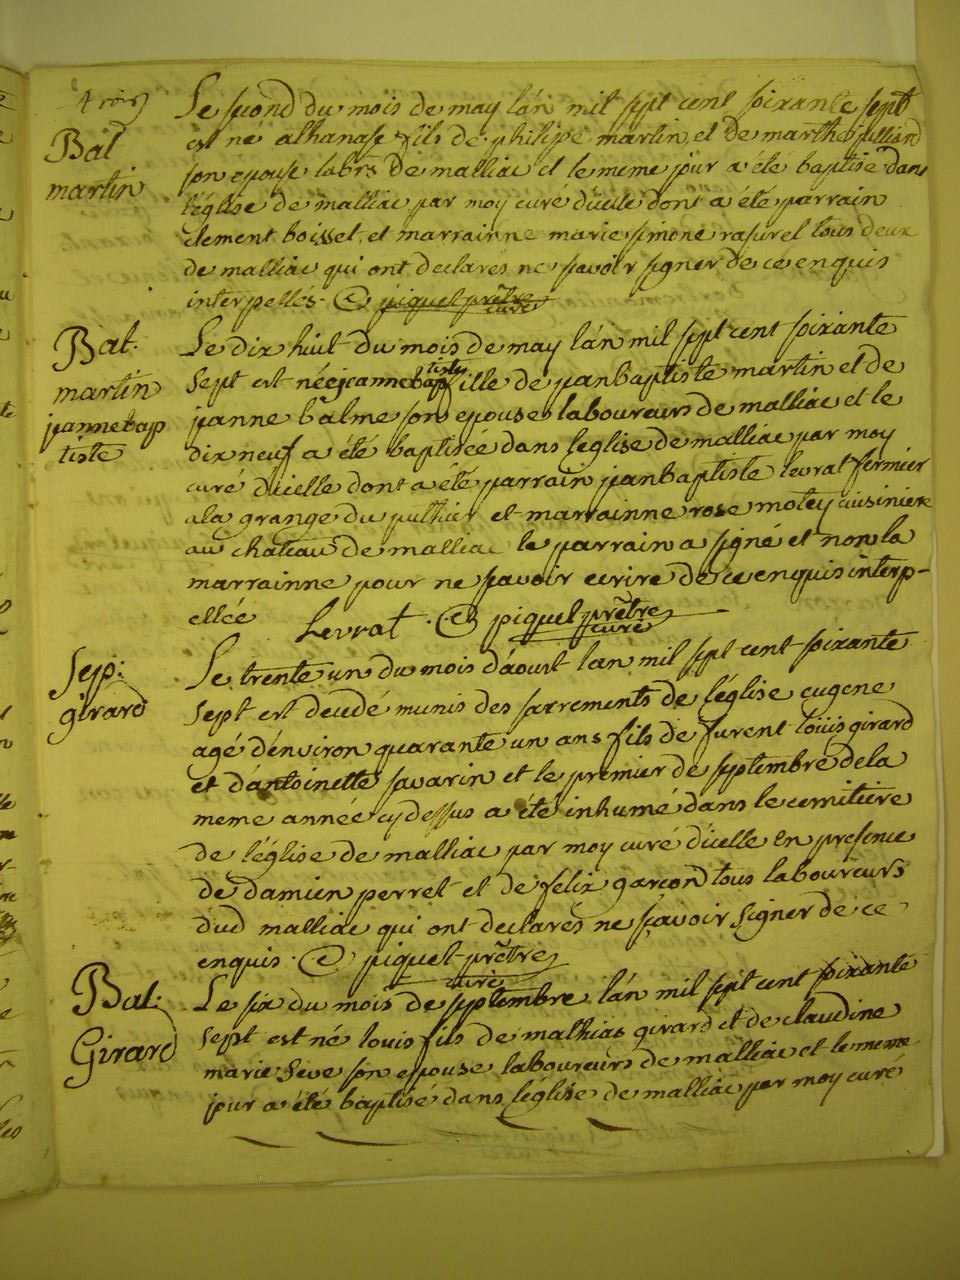 4 rois
Bat
martin
Le second du mois de may lán mil sept cent soixante sept
est né athanase fils de philipe martin et de marthe julliard
son epouse labrs de malliac et le meme jour a été baptisé dans
l'église de malliac par moy curé d'icelle dont a été parrain
clement boisset et marrainne marie simone rasurel tous deux
de malliac qui ont declarés ne savoir signer de ce enquis
interpellés. piquet prêtre
curé
Bat.
martin
jannebap
tiste
Le dix huit du mois de may lán mil sept cent soixante
tiste
sept est née jeannebap fille de janbaptiste martin et de
janne balme son epouse laboureurs de malliac et le
dix neuf a été baptisée dans l'eglise de malliac par moy
curé d'icelle dont a été parrain janbaptiste levrat fermier
a la grange du puthier et marrainne rose motey cuisiniere
au château de malliac le parrain a signé et non la
marrainne pour ne savoir ecrire de ce enquis interp-
ellée Levrat. piquet prêtre
curé
Sep:
girard
Le trente un du mois d'aoust lan mil sept cent soixante
sept est decedé munis des sacrements de l'église eugene
agé d'environ quarante un ans fils de furent loüis girard
et d'antoinette savarin et le premier de septembre de la
meme année cy dessus a été inhumé dans le cemitiere
de l'église de malliac par moy curé d'icelle en presence
de damien perret et de felix garçon tous laboureurs
dud malliac qui ont declarés ne sçavoir signer de ce
enquis. piquet prêtre
curé
Bat:
Girard
Le six du mois de septembre lán mil sept cent soixante
sept est né louis fils de mathias girard et de claudine
marie Seve son epouse laboureurs de malliac et le meme
jour a été baptisé dans l'église de malliac par moy curé